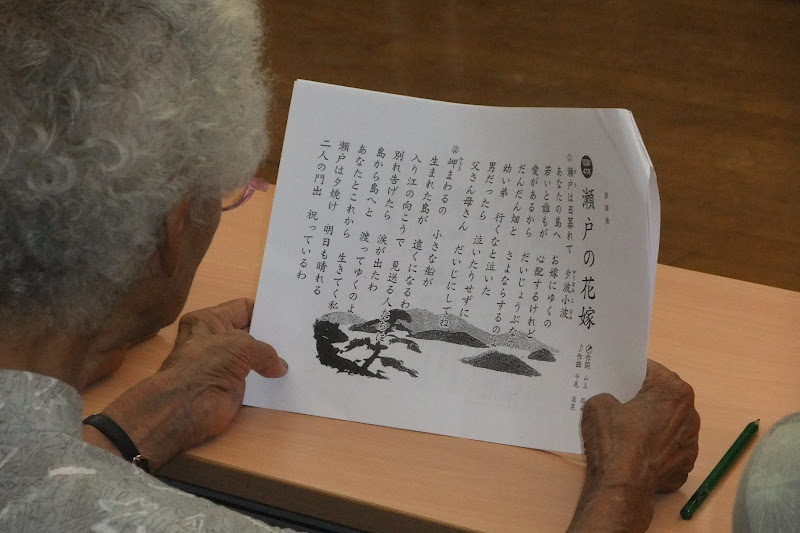 瀬戸の花嫁
作詞 山上
作曲 平尾 昌晃
① 瀬戸は日暮れて 夕波小波
あなたの島へ お嫁にゆくの
若いと誰もが 心配するけれど
愛があるから だいじょうぶなの
だんだん畑と さよならするのよ
幼い弟 行くなと泣いた
男だったら 泣いたりせずに
父さん母さん だいじにしてね
② 岬まわるの 小さな船が
生まれた島が 遠くになるわ
入り江の向こうで 見送る人たちに
別れ告げたら 涙が出たわ
島から島へと 渡ってゆくのよ
あなたとこれから 生きてく私
瀬戸は夕焼け 明日も晴れる
二人の門出 祝っているわ